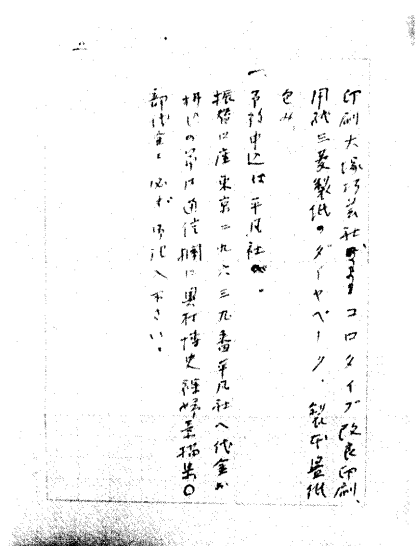 印刷大塚巧芸社 コロタイプ改良印刷、
用紙三菱製紙のダイヤペーク、製本畳紙
包み
一、予約申込は平凡社へ。
振替口座東京二九六三九番平凡社へ代金お
払いの節は通信欄に奥村博史 素描集〇
部代金と必ず御記入下さい。